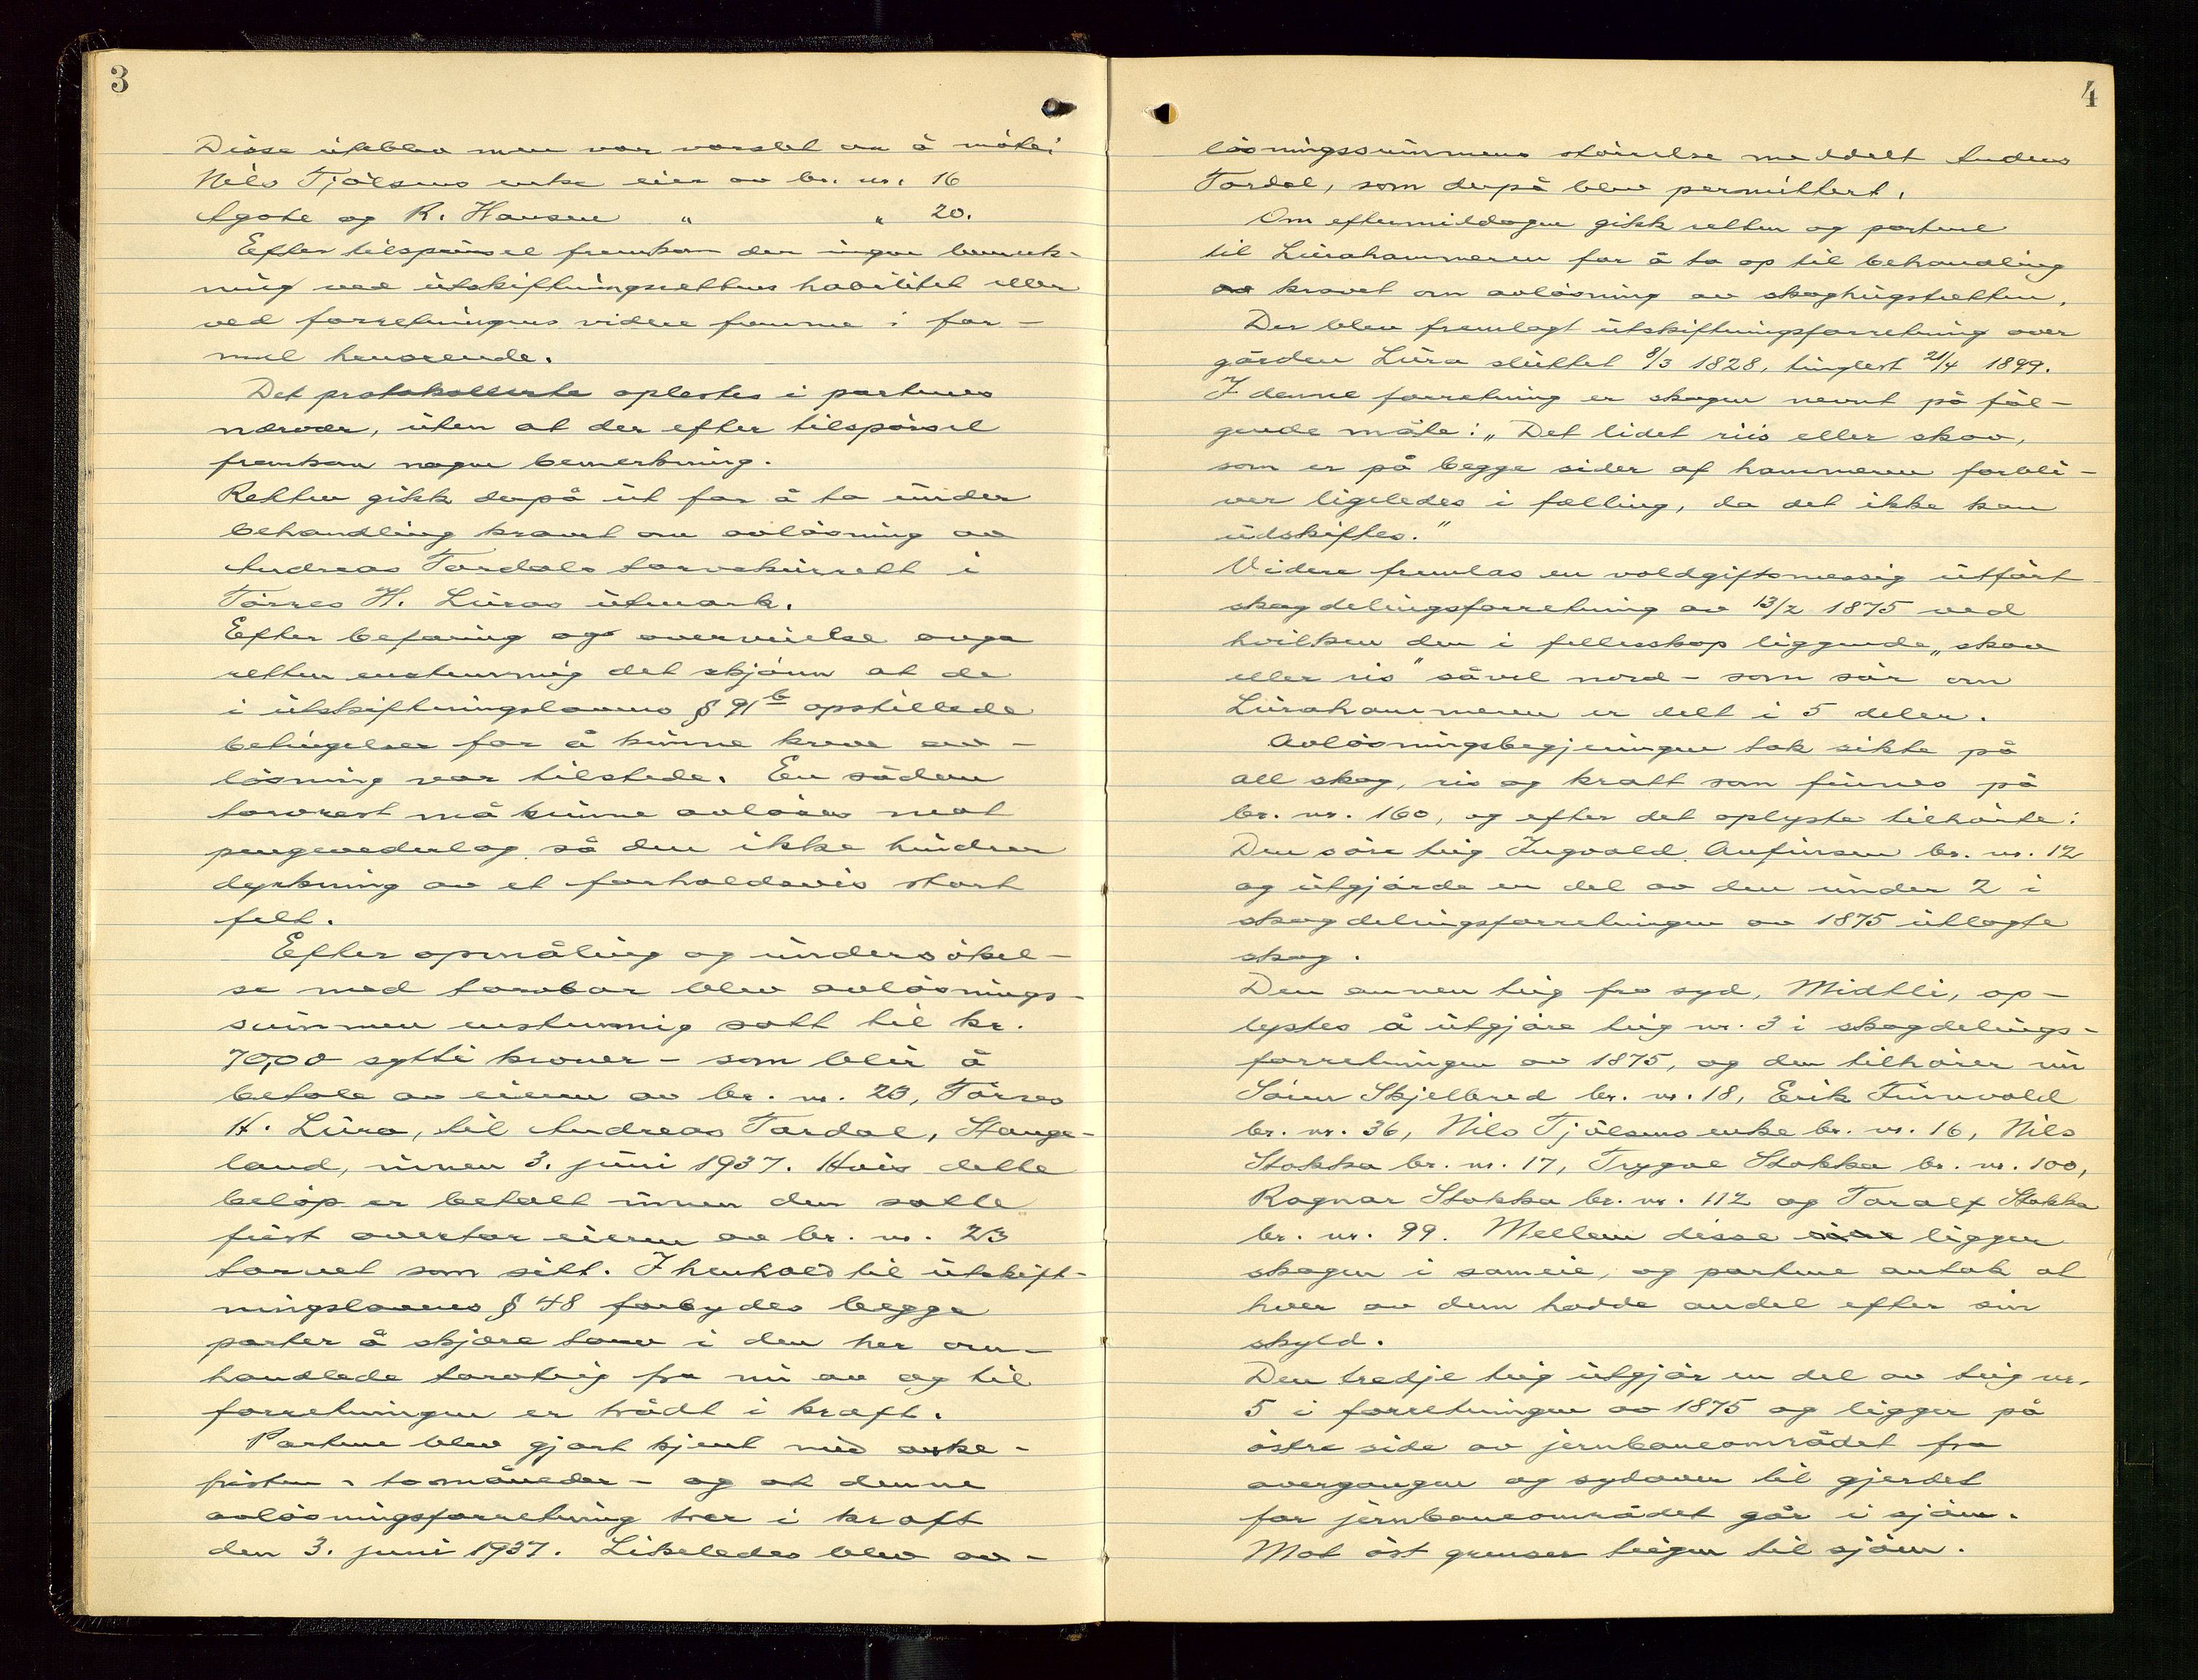 3
Disse uteblev men var varslet om å møte:
Nils Tjølsens enke eier av br. nr. 16
Agate og R. Hansen " " 20.
Efter tilspørsel fremkom der ingen bemerk-
ning ved utskiftningsrettens habilitet eller
ved forretningens videre fremme i for-
mel henseende.
Det protokollerte oplestes i partenes
nærvær, uten at der efter tilspørsel
fremkom nogen bemerkning.
Retten gikk derpå ut for å ta under
behandling kravet om avløsning av
Andreas Tordals torvskurrett i
Tørres H. Luras utmark.
Efter befaring og overveielse avga
retten enstemmig det skjønn at de
i utskiftningslovens § 91 b opstillede
betingelser for å kunne kreve av-
løsning var tilstede. En sådan
torvrett må kunne avløses mot
pengevederlag så den ikke hindrer
dyrkning av et forholdsvis stort
felt.
Efter opmåling og undersøkel-
se med torvbor blev avløsnings-
summen enstemmig satt til kr.
70,00 sytti kroner - som blir å
betale av eieren av br. nr. 23, Tørres
H. Lura, til Andreas Tordal, Stange-
land, innen 3. juni 1937. Hvis dette
beløp er betalt innen den satte
frist overtar eieren av br. nr. 23
torvet som sitt. I henhold til utskift-
ningslovens § 48 forbydes begge
parter å skjære torv i den her om-
handlede torvteig fra nu av og til
forretningen er trådt i kraft.
Partene blev gjort kjent med anke-
fristen - to måneder - og at denne
avløsningsforretning trer i kraft
den 3. juni 1937. Likeledes blev av-
4
løsningssummens størrelse meddelt Andreas
Tordal, som derpå blev permittert.
Om eftermiddagen gikk retten og partene
til Lurahammeren for å ta op til behandling
kravet om avløsning av skoghugstretten.
Der blev fremlagt utskiftningsforretning over
gården Lura sluttet 8/3 1828, tinglest 21/4 1899.
I denne forretning er skogen nevnt på føl-
gende måte: "Det lidet riis eller skov,
som er på begge sider af hammeren forbli-
ver ligeledes i fælling, da det ikke kan
udskiftes."
Videre fremlas en voldgiftsmessig utført
skogdelingsforretning av 13/2 1875 ved
hvilken den i fellesskap liggende "skov
eller ris" såvel nord- som sør om
Lurahammeren er delt i 5 deler.
Avløsningsbegjeringen tok sikte på
all skog, ris og kratt som finnes på
br. nr. 160, og efter det oplyste tilhørte:
Den søre teig Ingvald Anfinsen br. nr. 12
og utgjorde en del av den under 2 i
skogdelingsforretningen av 1875 utlagte
skog.
Den annen teig fra syd, Midtli, op-
lystes å utgjøre teig nr. 3 i skogdelings-
forretningen av 1875, og den tilhører nu
Søren Skjelbred br. nr. 18, Erik Finvold
br. nr. 36, Nils Tjølsens enke br. nr. 16, Nils
Stokka br. nr. 17, Trygve Stokka br. nr. 100,
Ragnar Stokka br. nr. 112 og Toralf Stokka
br. nr. 99. Mellem disse ligger
skogen i sameie, og partene antok at
hver av dem hadde andel efter sin
skyld.
Den tredje teig utgjør en del av teig nr.
5 i forretningen av 1875 og ligger på
østre side av jernbaneområdet fra
overgangen og sydover til gjerdet
for jernbaneområdet går i sjøen.
Mot øst grenser teigen til sjøen.